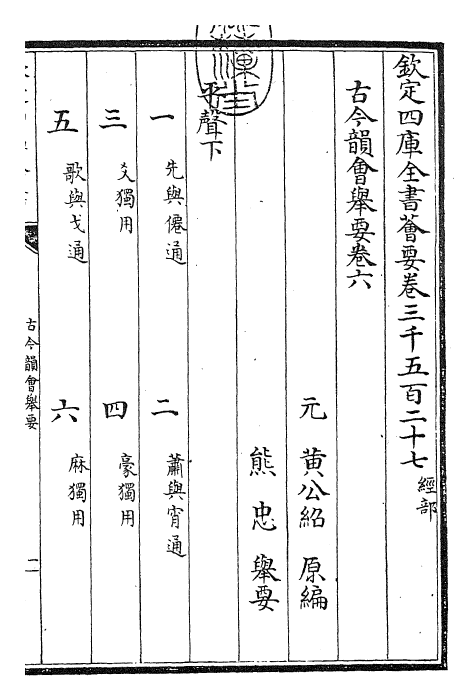 欽定四庫全書薈要卷三千五百二十七 經部
古今韻會舉要卷六
元 黄公紹 原編
熊 忠 舉要
平聲下
一 先與僊通 二 蕭與宵通
三 爻獨用 四 豪獨用
五 歌與戈通 六 麻獨用
古今韻會舉要